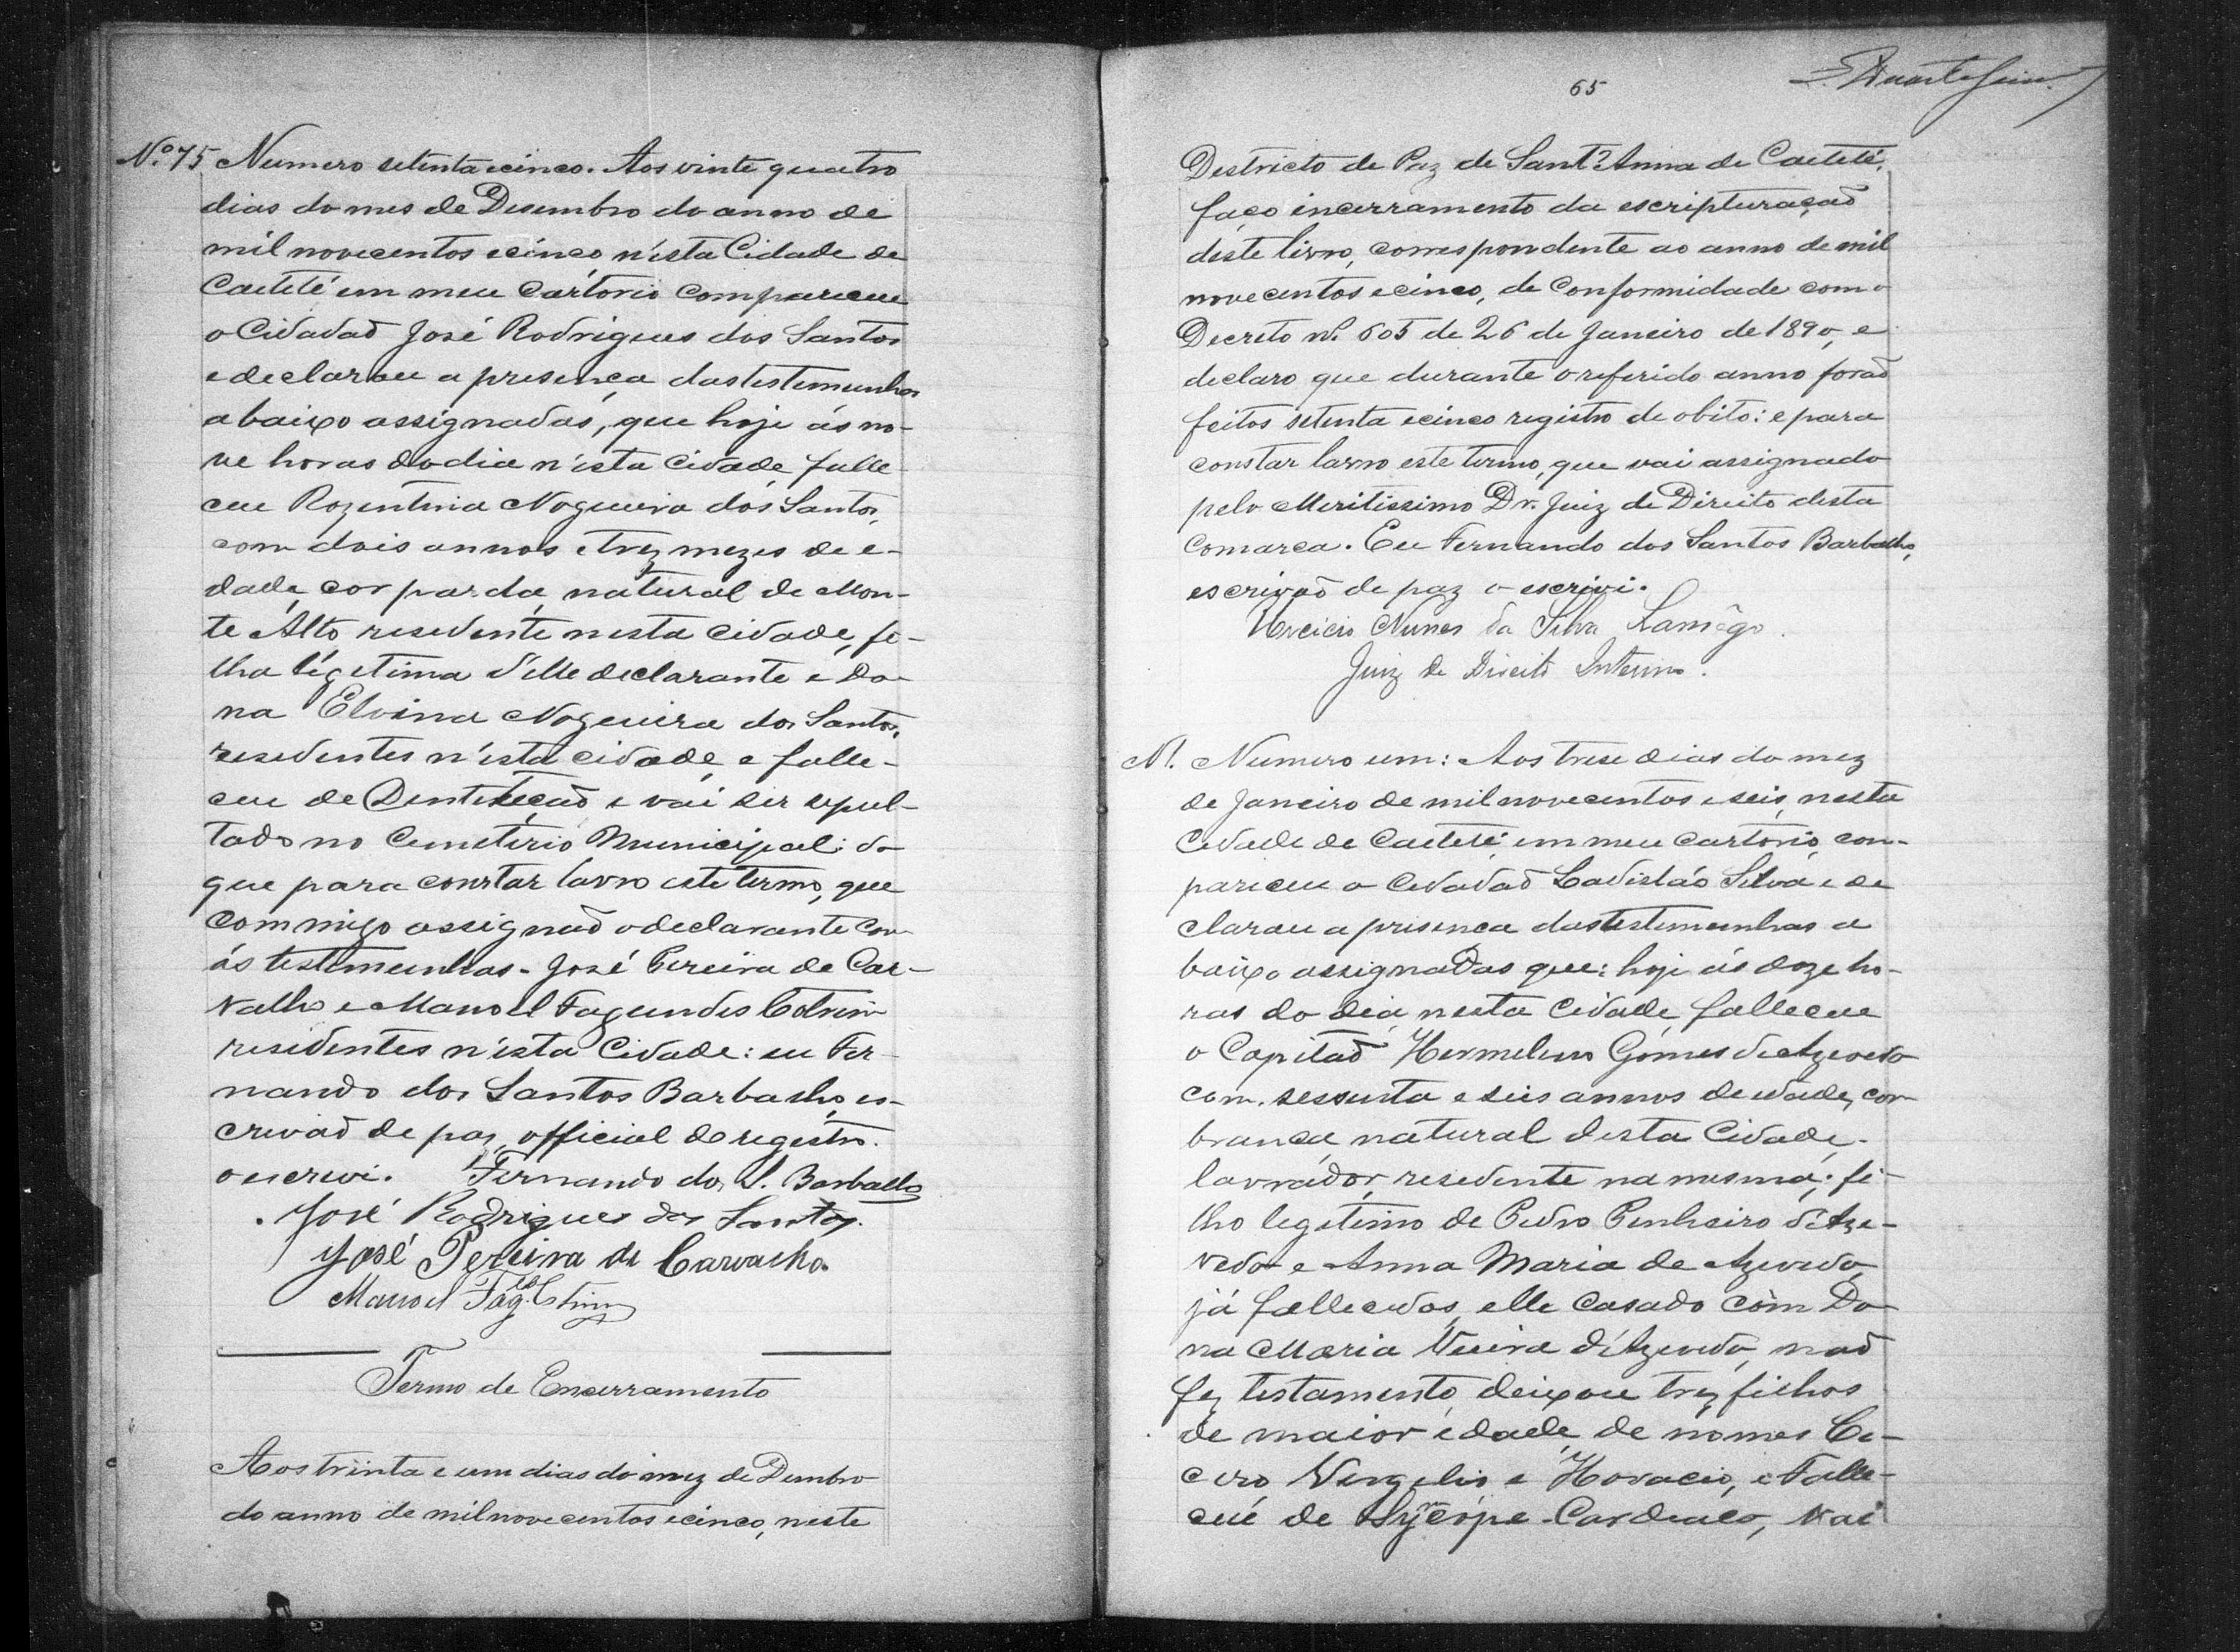 Nº 75 Numero setenta e cinco. Aos vinte quatro
dias do mes de Desembro do anno de
mil novecentos e cinco n'esta Cidade de
Caeteté em meu Cartorio compareceu
o Cidadaõ José Rodrigues dos Santos
e declarou a presença das testemunhas
abaixo assignadas, que hoje ás no-
ve horas do dia n'esta Cidade falle-
ceu Rozentina Nogueira dos Santos,
com dois annos e trez mezes de e-
dade, cor parda, natural de Mon-
te Alto residente nesta cidade, fi-
lha légetima d'elle declarante e Do-
na Elvina Nogueira dos Santos,
residentes n'esta cidade, e falle-
ceu de Denteteçaõ e vai ser sepul-
tado no Cemeterio Municipal: do
que para constar lavro este termo, que
commigo assignaõ o declarante com
ás testemunhas. José Pereira de Car-
valho e Manoel Fagundes Cotrim
residentes n'esta Cidade: eu Fer-
nando dos Santos Barbalho, es-
crivaõ de paz, official de registro.
o escrevi. Fernando dos S. Barbalho
José Rodrigues dos Santos.
José Pereira de Carvalho.
Manoel Fag.es Cotrim
Termo de Encerramento
Aos trinta e um dias do mez de Dembro
do anno de mil novecentos e cinco, neste
65
Districto de Paz de Sant'Anna de Caeteté,
faço encerramento da escripturaçaõ
deste livro, correspondente ao anno de mil
novecentos e cinco, de Conformidade com o
Decreto nº 605 de 26 de Janeiro de 1890, e
declaro que durante o referido anno foraõ
feitos setenta e cinco registro de obito: e para
constar lavro este termo, que vai assignado
pelo Meritissimo Dr. Juiz de Direito desta
Comarca. Eu Fernando dos Santos Barbalho,
escrivaõ de paz o escrivi.
Nunes da Silva Lamêgo.
Juiz de Direito Interino.
N1. Numero um: Aos trese dias do mez
de Janeiro de mil novecentos e seis, nesta
Cidade de Caeteté em meu cartorio, com-
pareceu o Cidadaõ Ladisláo Silva e de
clarou a presenca das testemunhas a
baixo assignadas que: hoje ás doze ho-
ras do dia nesta Cidade, falleceu
o Capitaõ Hermelino Gomes de Azevedo
com. sessenta e seis annos de edade, cor
branca, natural desta Cidade,
lavrador, residente na mesma; fi-
lho legetimo de Pedro Penheiro d'Aze-
vedo e Anna Maria de Azevedo,
já fallecidos, elle Casado còm Do
na Maria Vieira d'Azevedo, naõ
fez testamento, deixou trez filhos
de maior edade, de nomes Ce-
cero, Vergelio e Horacio, e Falle-
ceú de Syncópe Cardiaco, vai